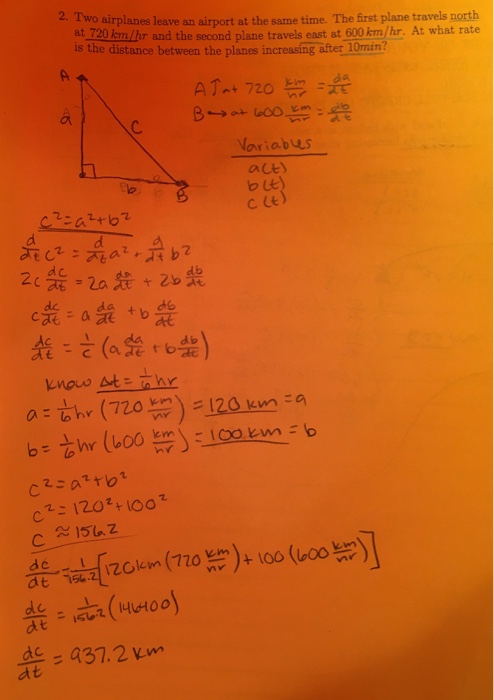 2. Two airplanes leave an airport at the same time. The first plane travels north
at 720 km/hr and the second plane travels east at 600 km/hr. At what rate
is the distance between the planes increasing after 10min?
A
A ↑ at 720 km/hr = da/dt
a
B → at 600 km/hr = db/dt
C
Variables
a(t)
b(t)
c(t)
b
B
c² = a² + b²
d/dt c² = d/dt a² + d/dt b²
2c dc/dt = 2a da/dt + 2b db/dt
c dc/dt = a da/dt + b db/dt
dc/dt = 1/c (a da/dt + b db/dt)
know Δt = 1/6 hr
a = 1/6 hr (720 km/hr) = 120 km = a
b = 1/6 hr (600 km/hr) = 100 km = b
c² = a² + b²
c² = 120² + 100²
c ≈ 156.2
dc/dt = 1/156.2 [120km (720 km/hr) + 100 (600 km/hr)]
dc/dt = 1/156.2 (146400)
dc/dt = 937.2 km